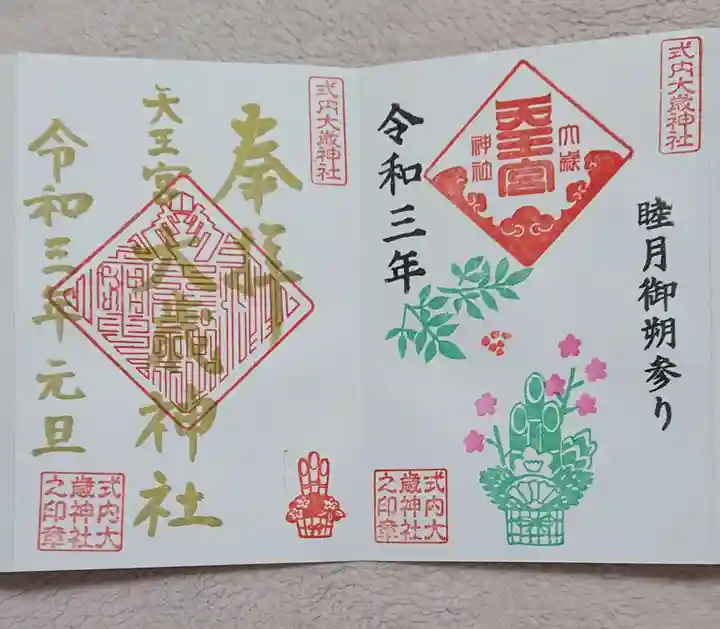 式内大歳神社
睦月御朔参り
天王宮
大歳
神社
令和三年
式内大
歳神社
之印章
式内大歳神社
奉拝
天王宮
大歳神社
令和三年元旦
式内大
歳神社
之印章